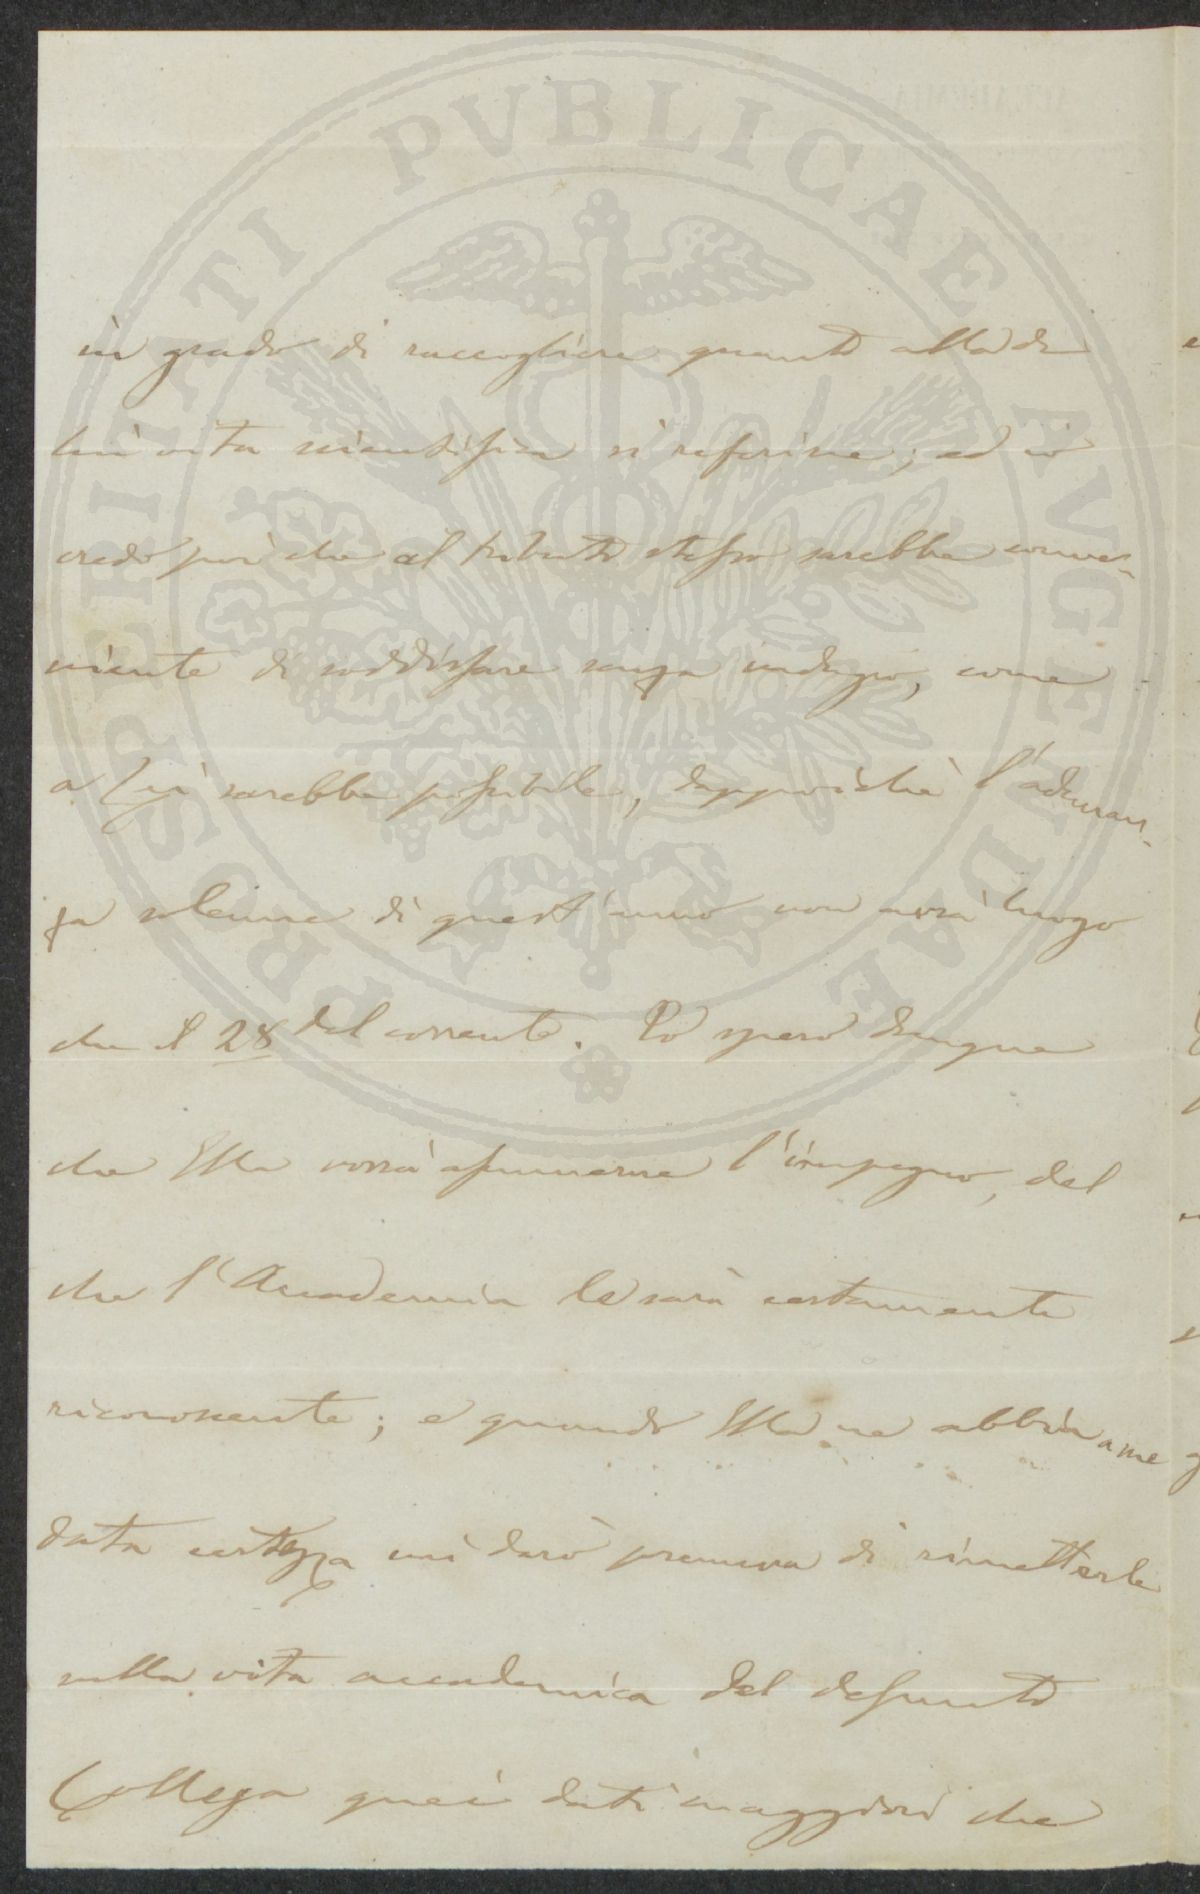 PROSPERITATI PVBLICAE AVGENDAE
in grado di raccogliere quanto alla di
lui vita scientifica si riferisce; ed io
credo poi che al tributo stesso sarebbe conve-
niente di soddisfare senza indugio, come
a Lei sarebbe possibile, dappoichè l'adunan-
za solenne di quest'anno non avrà luogo
che il 28 del corrente. Io spero dunque
che Ella vorrà assumerne l'impegno, del
che l'Accademia le sarà certamente
riconoscente; e quando Ella ne abbia a me
data certezza mi darò premura di rimetterle
sulla vita accademica del defunto
Collega quei dati maggiori che